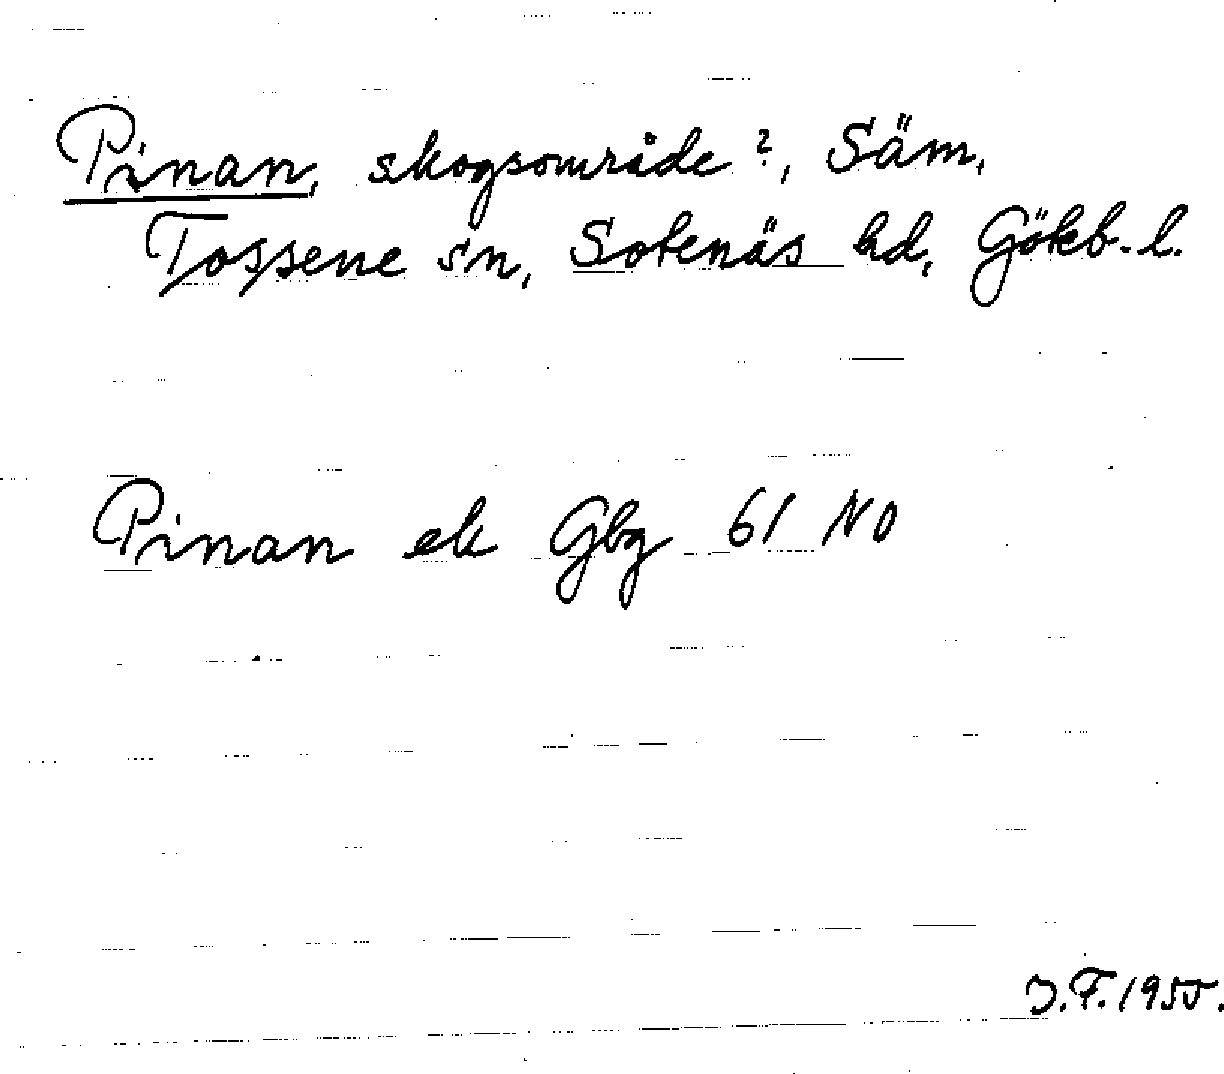 Pinan, skogsområde ?, Säm,
Tossene sn, Sotenäs hd, Göteb. l.
Pinan ek Gbg 61 NO
J.F. 1955.